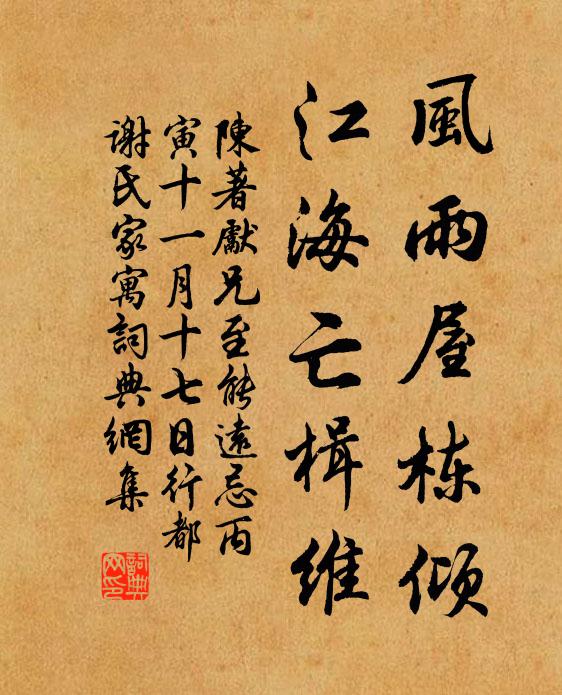 風雨屋栋倾
江海亡楫維
陳著獻兄至能遠忌丙
寅十一月十七日行都
謝氏家寓詞典網集
詞典网印